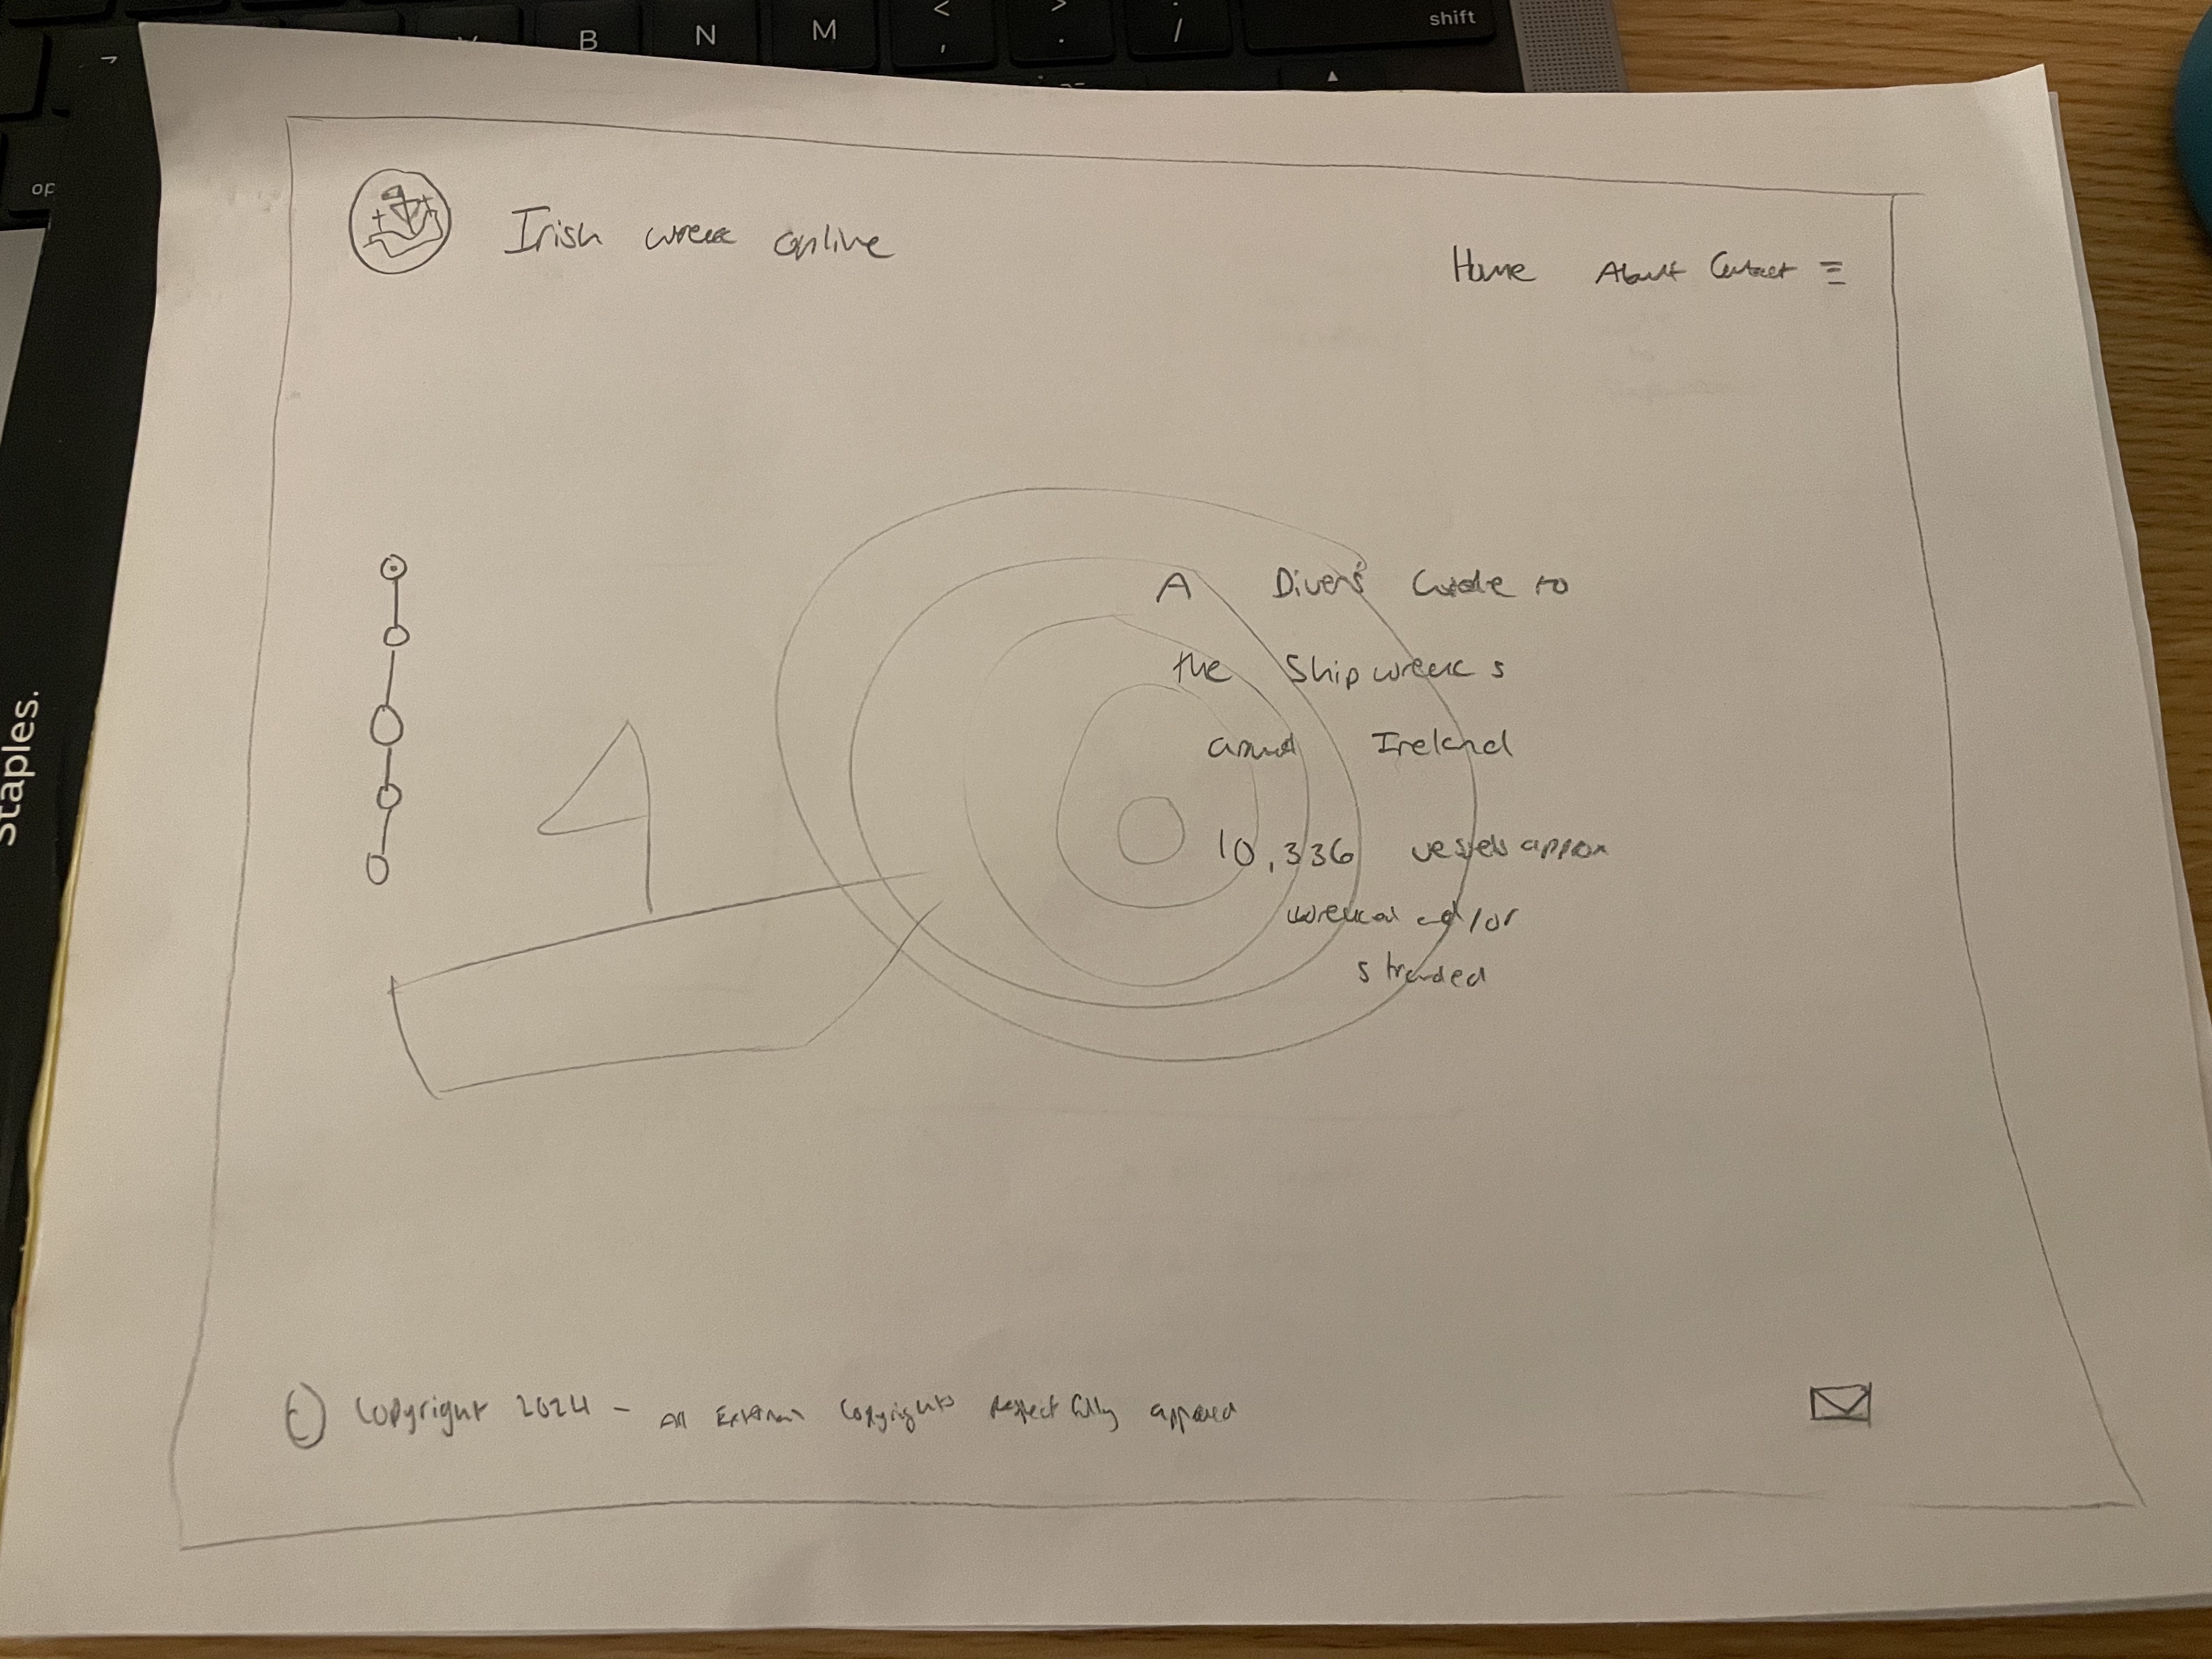 B N M < , > . / shift
op
Irish wreck online
Home About Contact
A Divers' Guide to
the Shipwrecks
around Ireland
10,336 vessels approx
wrecked and/or
stranded
Staples.
© Copyright 2024 - All External Copyrights Respectfully